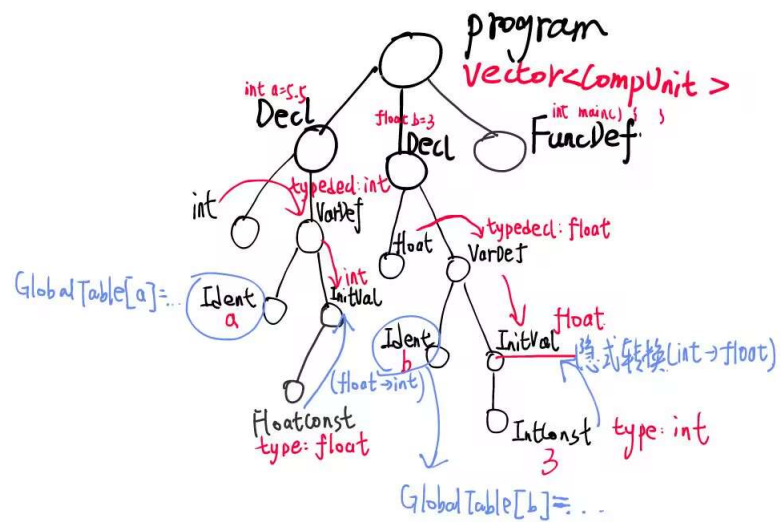 program
vector<CompUnit>
int a=5.5
Decl
float b=3
Decl
int main() { }
FuncDef
int
typedecl: int
VarDef
float
typedecl: float
VarDef
GlobalTable[a]=...
Ident
a
int
InitVal
Ident
b
InitVal
float
隐式转换(int→float)
(float→int)
Floatconst
type: float
IntConst
3
type: int
GlobalTable[b]=...